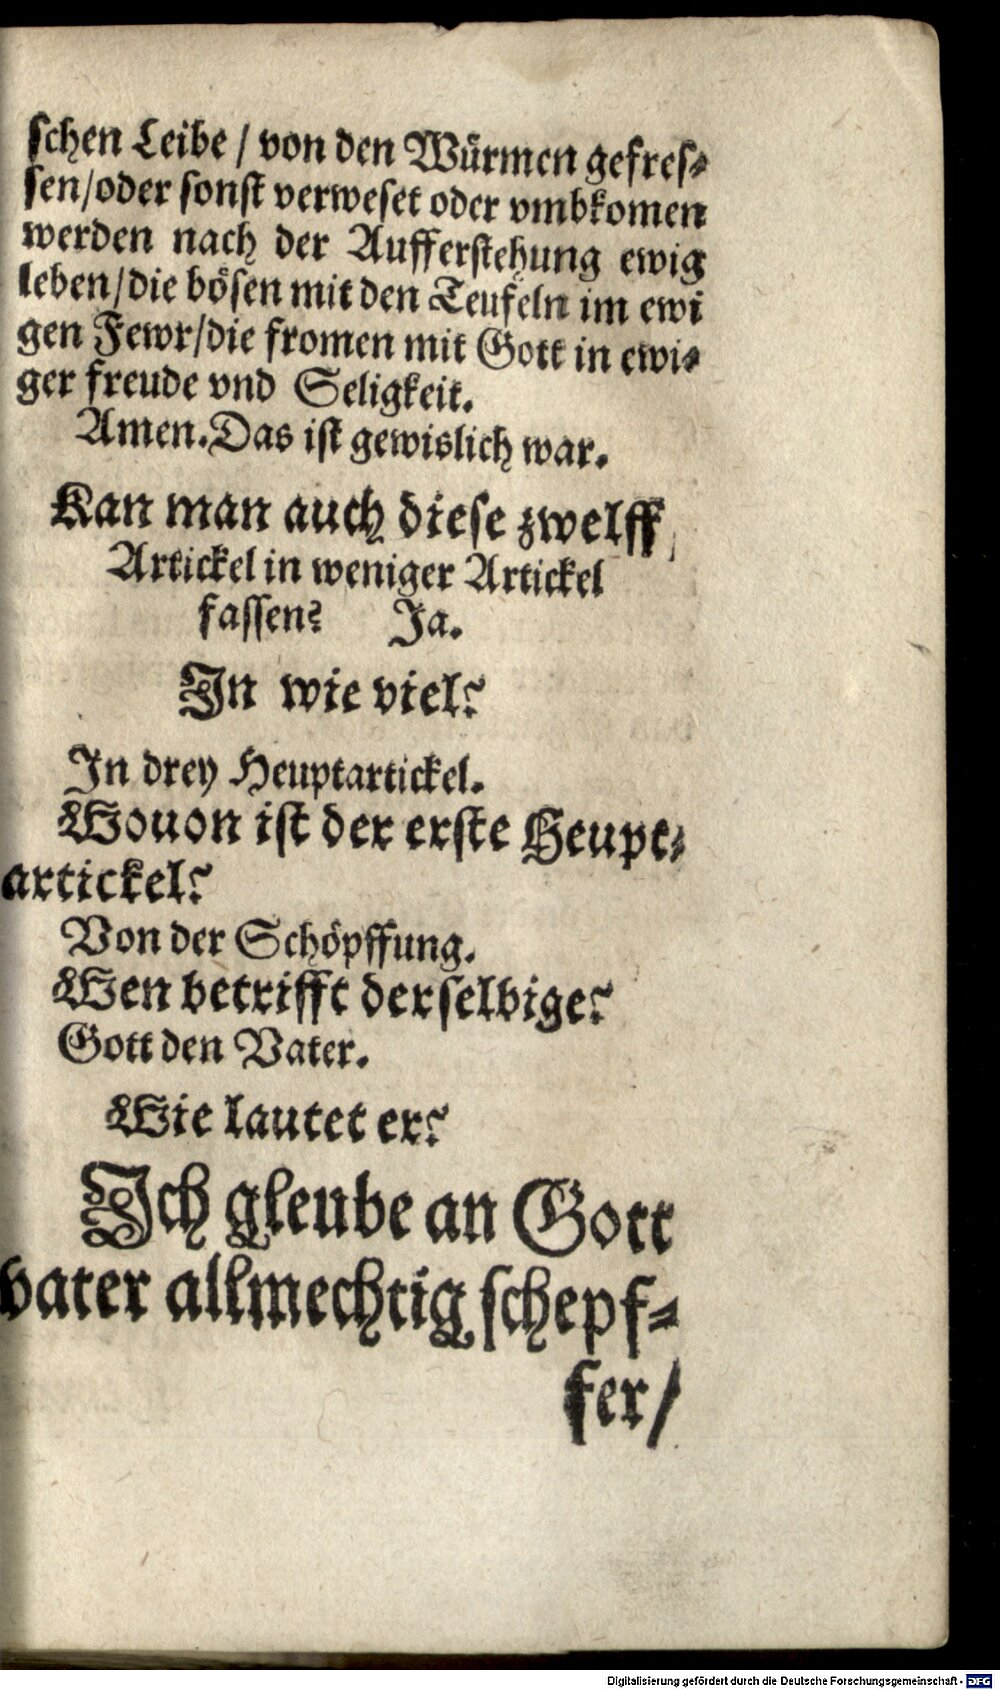 schen Leibe / von den Würmen gefres⸗
sen/oder sonst verweset oder vmbkomen
werden nach der Aufferstehung ewig
leben/die bösen mit den Teufeln im ewi
gen Fewr/die fromen mit Gott in ewi⸗
ger freude vnd Seligkeit.
Amen. Das ist gewislich war.
Kan man auch diese zwelff
Artickel in weniger Artickel
fassen? Ja.
In wie viel?
In drey Heuptartickel.
Wouon ist der erste Heupt⸗
artickel?
Von der Schöpffung.
Wen betrifft derselbige?
Gott den Vater.
Wie lautet er?
Ich gleube an Gott
vater allmechtig schepf⸗
fer/
Digitalisierung gefördert durch die Deutsche Forschungsgemeinschaft - DFG